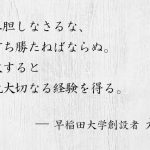 胆しなさるな、
ち勝たねばならぬ。
すると
大切なる経験を得る。
― 早稲田大学創設者